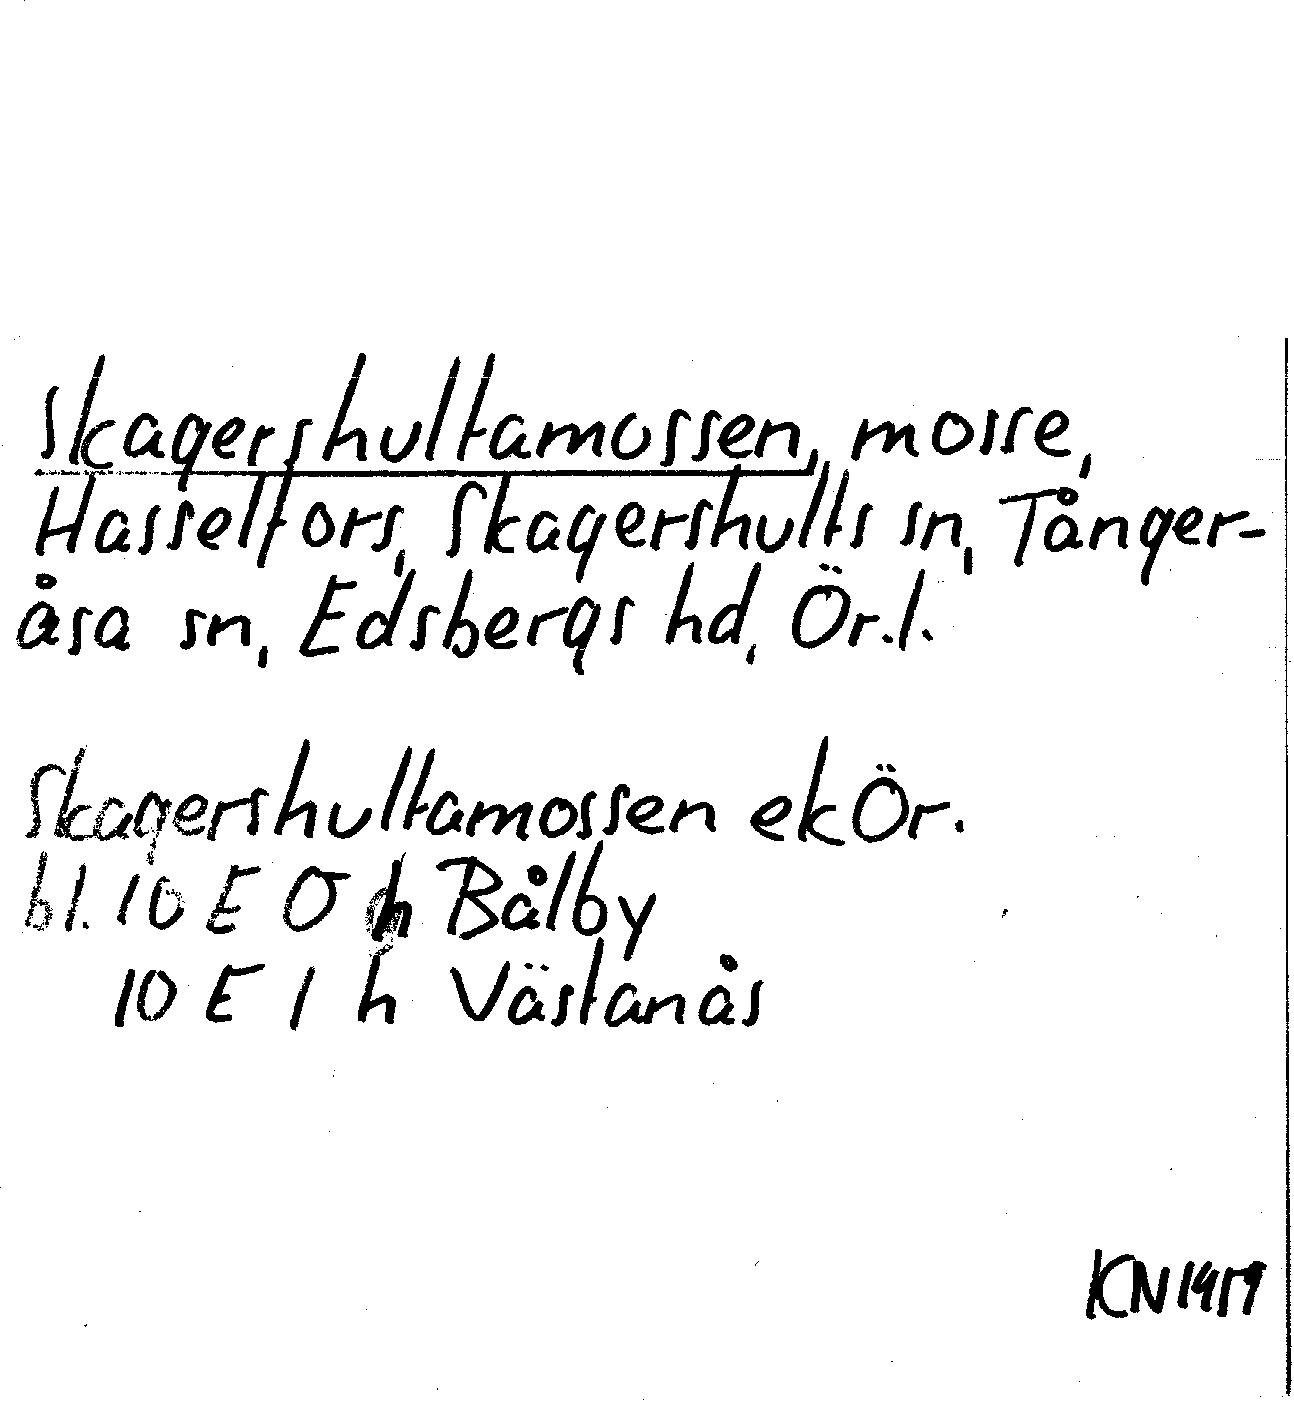 Skagershultamossen, mosse,
Hasselfors, Skagershults sn, Tånger-
åsa sn, Edsbergs hd, Ör.l.
Skagershultamossen ekÖr.
bl. 10 E 0 h Bålby
10 E 1 h Västanås
KN 1959